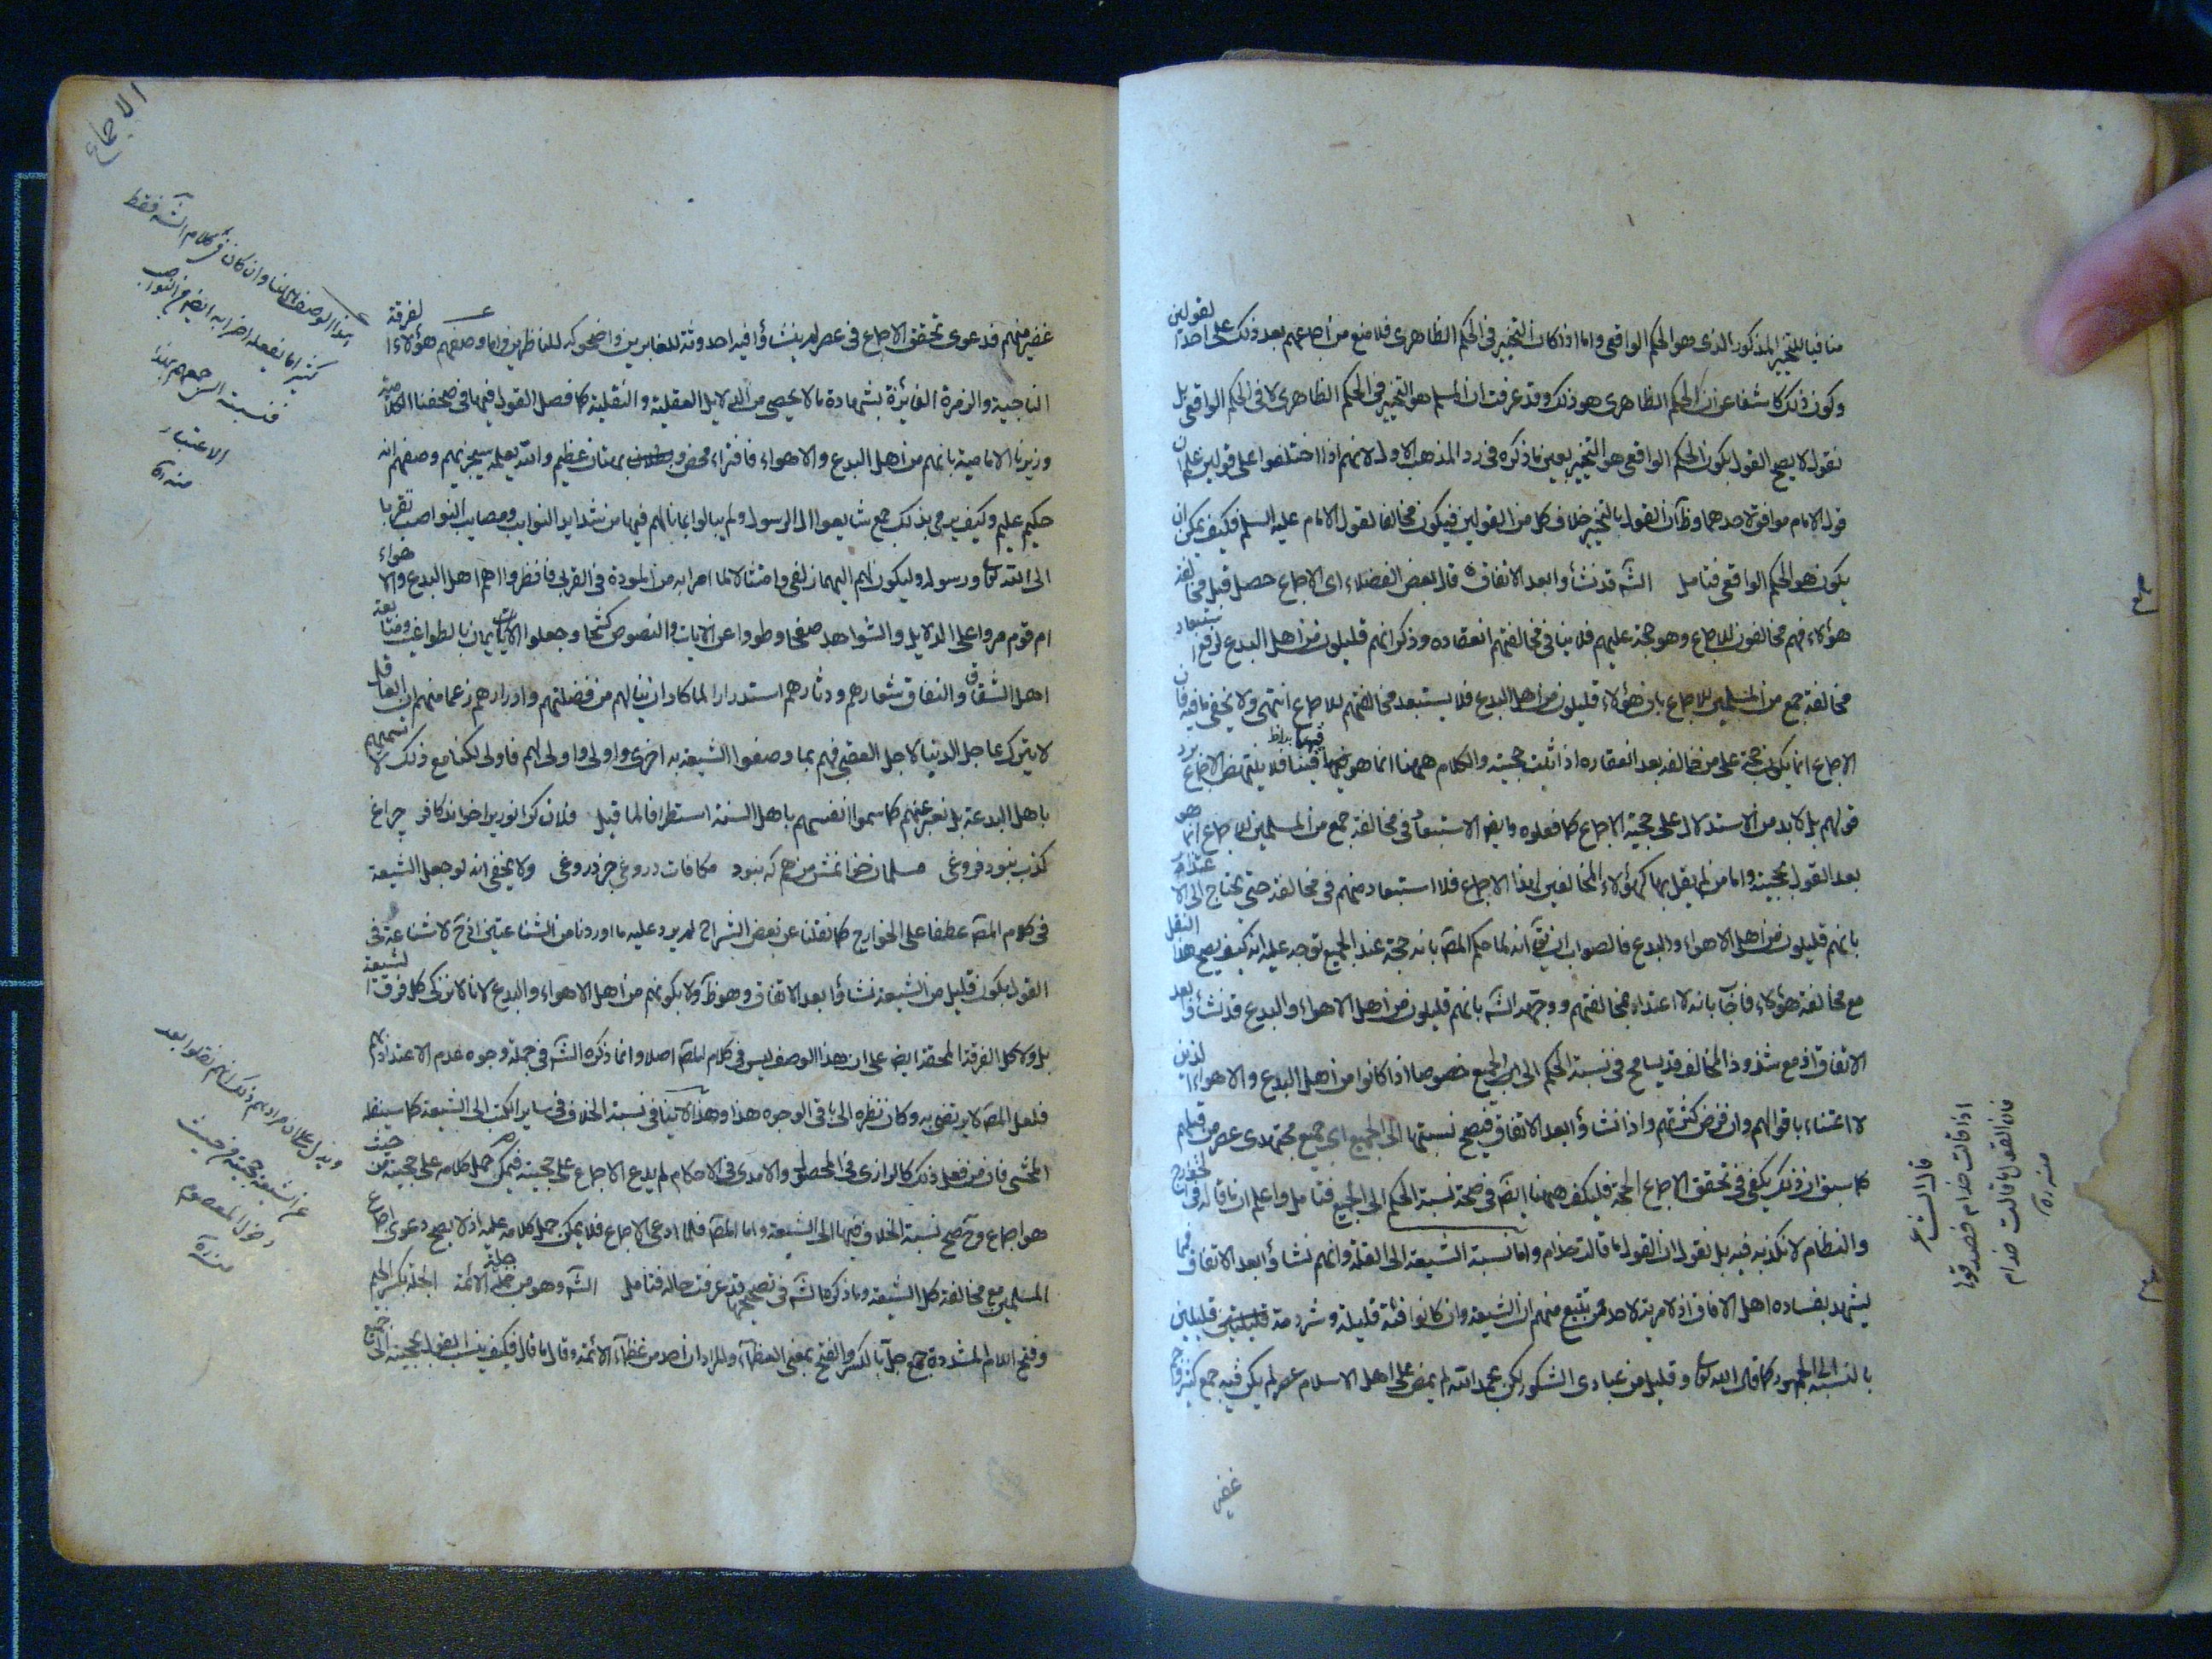 منافيا للتخيير المذكور الذى هو الحكم الواقعى واما اذا كان التخيير فى الحكم الظاهرى فلا منع من اجماعهم بعد ذلك على احد القولين
وكون ذلك كاشفا عن ان الحكم الظاهرى هو ذلك وقد عرفت ان المسلم هو التخيير فى الحكم الظاهرى لا فى الحكم الواقعى بل
نقول لا يصح القول بكون الحكم الواقعى هو التخيير بعين ما ذكره فى رد المذهب الاول لانهم اذا اختلفوا على قولين علم ان
قول الامام موافق لاحدهما وظ ان القول بالتخيير خلاف كل من القولين فيكون مخالفا لقول الامام عليه السلم فكيف يمكن ان
يكون هو الحكم الواقعى فتامل الشه قد نشأوا بعد الاتفاق قال بعض الفضلاء اى الاجماع حصل قبل مخالفة
هؤلاء فهم مخالفون للاجماع وهو حجة عليهم فلا ينافى مخالفتهم انعقاده وذكر انهم قليلون من اهل البدع لرفع استبعاد
مخالفة جمع من المسلمين للاجماع بان هؤلاء قليلون من اهل البدع فلا يستبعد مخالفتهم للاجماع انتهى ولا يخفى ما فيه فان
الاجماع انما يكون حجة على من خالفه بعد انعقاده اذا ثبت حجيته والكلام ههنا انما هو فيها فلا ينتهض الاجماع برد
قولهم بل لا بد من الاستدلال على حجية الاجماع كما فعلوه وايضا الاستبعاد فى مخالفة جمع من المسلمين للاجماع انما هو
بعد القول بحجيته واما من لم يقل بها كهؤلاء المخالفين لهذا الاجماع فلا استبعاد منهم فى مخالفته حتى يحتاج الى الاعتذار
بانهم قليلون من اهل الاهواء والبدع فالصواب ان يقال انه لما حكم المص بانه حجة عند الجميع توجه عليه انه كيف يصح هذا النقل
مع مخالفة هؤلاء فاجاب بانه لا اعتداد بمخالفتهم ووجهه الشه بانهم قليلون من اهل الاهواء والبدع قد نشأوا بعد
الاتفاق اذ مع شذوذ المخالف قد يسامح فى نسبة الحكم الى الجميع خصوصا اذا كانوا من اهل البدع والاهواء الذين
لا اعتناء باقوالهم وان فرض كثرتهم واذا نشأوا بعد الاتفاق فيصح نسبتها الى الجميع اى جميع مجتهدى عصر من قبلهم
كما سبق ان ذلك يكفى فى تحقق الاجماع الحجة فليكف ههنا ايضا فى صحة نسبة الحكم الى الجميع فتامل واعلم ان ما قاله فى الخوارج
والنظام لا نكذبه فيه بل نقول ان القول ما قالت حذام واما نسبة الشيعة الى القلة وانهم نشأوا بعد الاتفاق فمما
يشهد بفساده اهل الافاق اذ لا مرية لاحد ممن تتبع منهم ان الشيعة وان كانوا فئة قليلة وشرذمة قليلين
بالنسبة الى الجمهور كما قال الله تعالى وقليل من عبادى الشكور لكن بحمد الله لم يمض على اهل الاسلام عصر لم يكن فيه جمع كثير وجم
قال الشاعر
اذا قالت حذام فصدقوها
فان القول ما قالت حذام
منه ره
غفير
الاجماع
غفير منهم فدعوى تحقق الاجماع فى عصر لم ينشأوا فيه احدوثة للغابرين واضحوكة للناظرين واما وصفهم هؤلاء الفرقة
الناجية والزمرة الفائزة بشهادة ما لا يحصى من الدلايل العقلية والنقلية كما فصل القول فيها فى صحفنا الكلامية
وزبرنا الامامية بانهم من اهل البدع والاهواء فافتراء محض وبهتان عظيم والله يعلمه سيجزيهم وصفهم انه
حكيم عليم وكيف يرمى بذلك جمع شايعوا ال الرسول ولم يبالوا بما نالهم فيها من شدايد النوايب ومصايب النواصب تقربا
الى الله تعالى ورسوله وليكون لهم اليهما زلفى وامتثالا لما امرا به من المودة فى القربى فانظروا اهم اهل البدع والاهواء
ام قوم مروا على الدلايل والشواهد صفحا وطووا عن الايات والنصوص كشحا وجعلوا الايمان بالطواغيت ومتابعة
اهل الشقاق والنفاق شعارهم ودثارهم استدرارا لما كاد ان ينالهم من فضلتهم وادرارهم زعما منهم ان العاقل
لا يترك عاجل الدنيا لاجل العقبى فهم بما وصفوا الشيعة به احرى واولى واولى لهم فاولى لكنا مع ذلك لا نسميهم
باهل البدعة بل نعبر عنهم كما سموا انفسهم باهل السنة استظرافا لما قيل فلان كز انورى را خواند كافر چراغ
كذب نبود فروغى مسلمان خوانمش من هم كه نبود مكافات دروغى جز دروغى ولا يخفى انه لو جعل الشيعة
فى كلام المص عطفا على الخوارج كما نقلنا عن بعض الشراح لم يرد عليه ما اوردنا من الشناعتين اذ ح لا شناعة فى
القول بكون قليل من الشيعة نشأوا بعد الاتفاق وهو ظ ولا بكونهم من اهل الاهواء والبدع لانا لا نزكى كل فرق الشيعة
بل ولا كل الفرقة المحقة ايضا على ان هذا الوصف ليس فى كلام المص اصلا وانما ذكره الشه فى جملة وجوه عدم الاعتداد بهم
فلعل المص لا يرتضى به وكان نظره الى باقى الوجوه هذا وهذا لا ينافى نسبة الخلاف فى ساير الكتب الى الشيعة كما سينقله
المحشى فان من فعل ذلك كالرازى فى المحصول والامدى فى الاحكام لم يدع الاجماع على حجيته فيمكن حمل كلامه على حجيته من حيث
هو اجماع وح تصح نسبة الخلاف فيها الى الشيعة واما المص فلما ادعى الاجماع فلا يمكن حمل كلامه عليه اذ لا يصح دعوى اجماع
المسلمين مع مخالفة كل الشيعة وما ذكره الشه فى تصحيحها قد عرفت حاله فتامل الشه وهو من جلة الائمة الجلة بكسر الجيم
وفتح اللام المشددة جمع جل بالكسر والفتح بمعنى العظماء والمراد ان احمد من عظماء الائمة وقال ما قال فكيف ينسب القول بحجيته الى الجميع
هذا الوصف ههنا وان كان فى كلام الشه فقط
منه ره
ويدل على ان مرادهم ذلك انهم نقلوا بعد
عن الشيعة حجيته من حيث
دخول المعصوم
منه ره